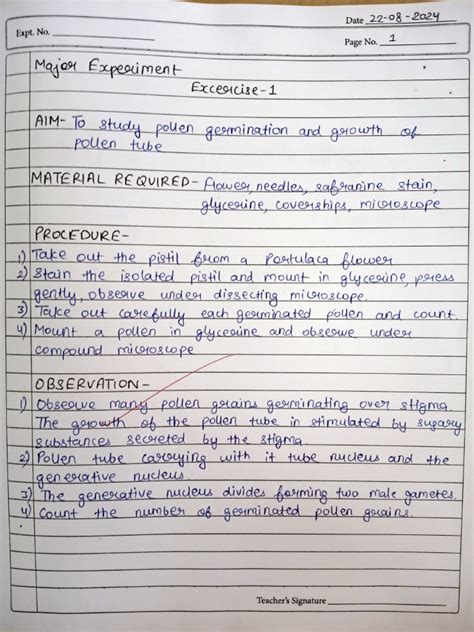 Date 22-08-2024
Expt. No.
Page No. 1
Major Experiment
Excercise-1
AIM- To study pollen germination and growth of
pollen tube
MATERIAL REQUIRED- flower, needles, safranine stain,
glycerine, coverships, microscope
PROCEDURE-
1) Take out the pistil from a Portulaca flower
2) Stain the isolated pistil and mount in glycerine, press
gently, observe under dissecting microscope.
3) Take out carefully each germinated pollen and count.
4) Mount a pollen in glycerine and observe under
compound microscope
OBSERVATION-
1) Observe many pollen grains germinating over stigma.
The growth of the pollen tube in stimulated by sugary
substances secreted by the stigma.
2) Pollen tube carrying with it tube nucleus and the
generative nucleus.
3) The generative nucleus divides forming two male gametes.
4) Count the number of germinated pollen grains.
Teacher's Signature